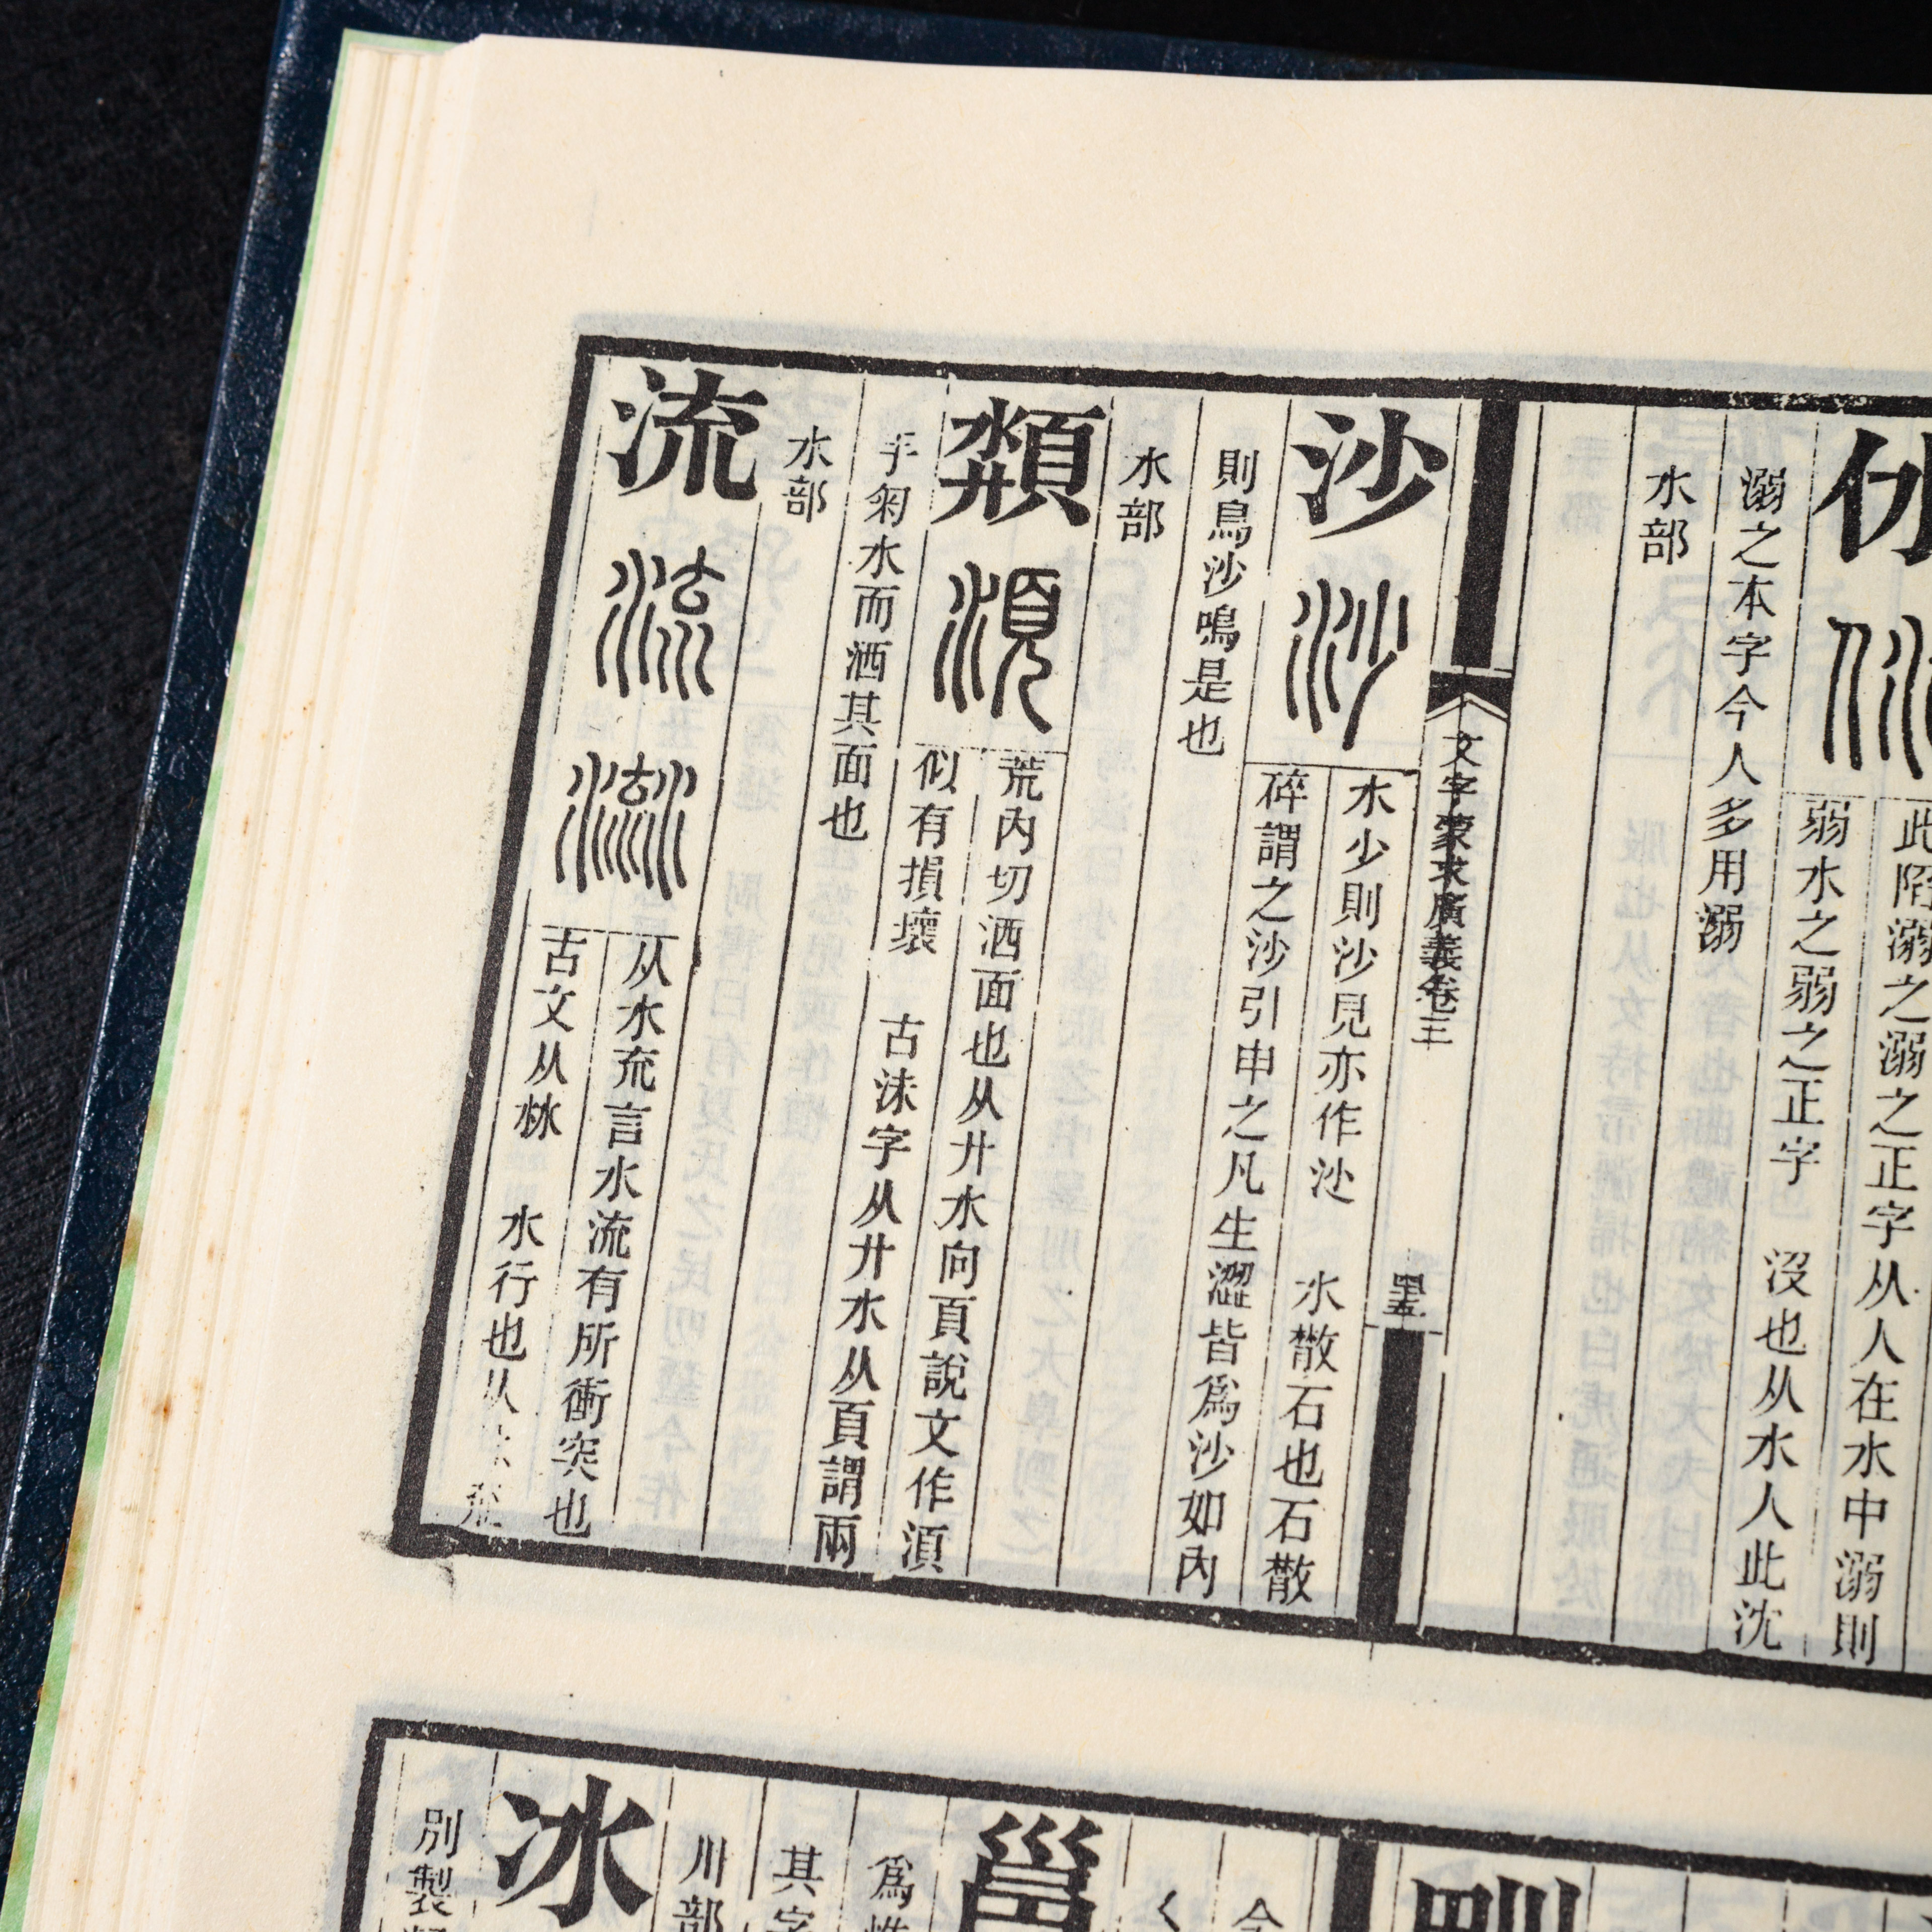 此陷溺之溺之正字从人在水中溺則
弱水之弱之正字　沒也从水人此沈
溺之本字今人多用溺
水部
文字蒙求廣義卷三
沙
水少則沙見亦作沙　水散石也石散
碎謂之沙引申之凡生澀皆爲沙如內
則鳥沙鳴是也
水部
荒內切洒面也从廾水向頁說文作湏
似有損壞　古沬字从廾水从頁謂兩
手匊水而洒其面也
水部
流
从水㐬言水流有所衝突也
古文从沝　水行也从
冰
川部
別製
邕
其字
爲